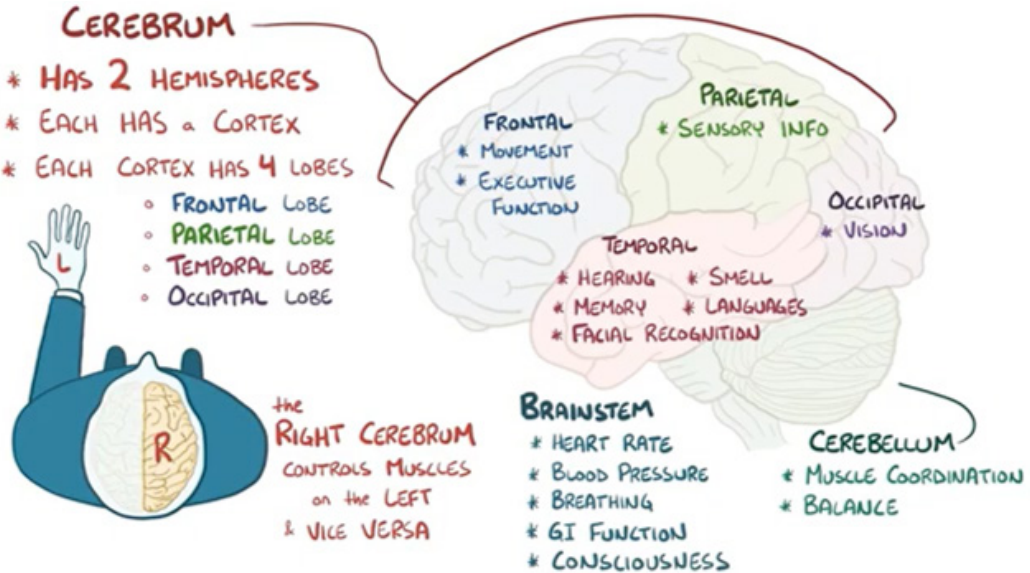 CEREBRUM
* HAS 2 HEMISPHERES
* EACH HAS a CORTEX
* EACH CORTEX HAS 4 LOBES
◦ FRONTAL LOBE
◦ PARIETAL LOBE
◦ TEMPORAL LOBE
◦ OCCIPITAL LOBE
L
R
the
RIGHT CEREBRUM
CONTROLS MUSCLES
on the LEFT
& VICE VERSA
FRONTAL
* MOVEMENT
* EXECUTIVE
FUNCTION
PARIETAL
* SENSORY INFO
OCCIPITAL
* VISION
TEMPORAL
* HEARING * SMELL
* MEMORY * LANGUAGES
* FACIAL RECOGNITION
BRAINSTEM
* HEART RATE
* BLOOD PRESSURE
* BREATHING
* GI FUNCTION
* CONSCIOUSNESS
CEREBELLUM
* MUSCLE COORDINATION
* BALANCE